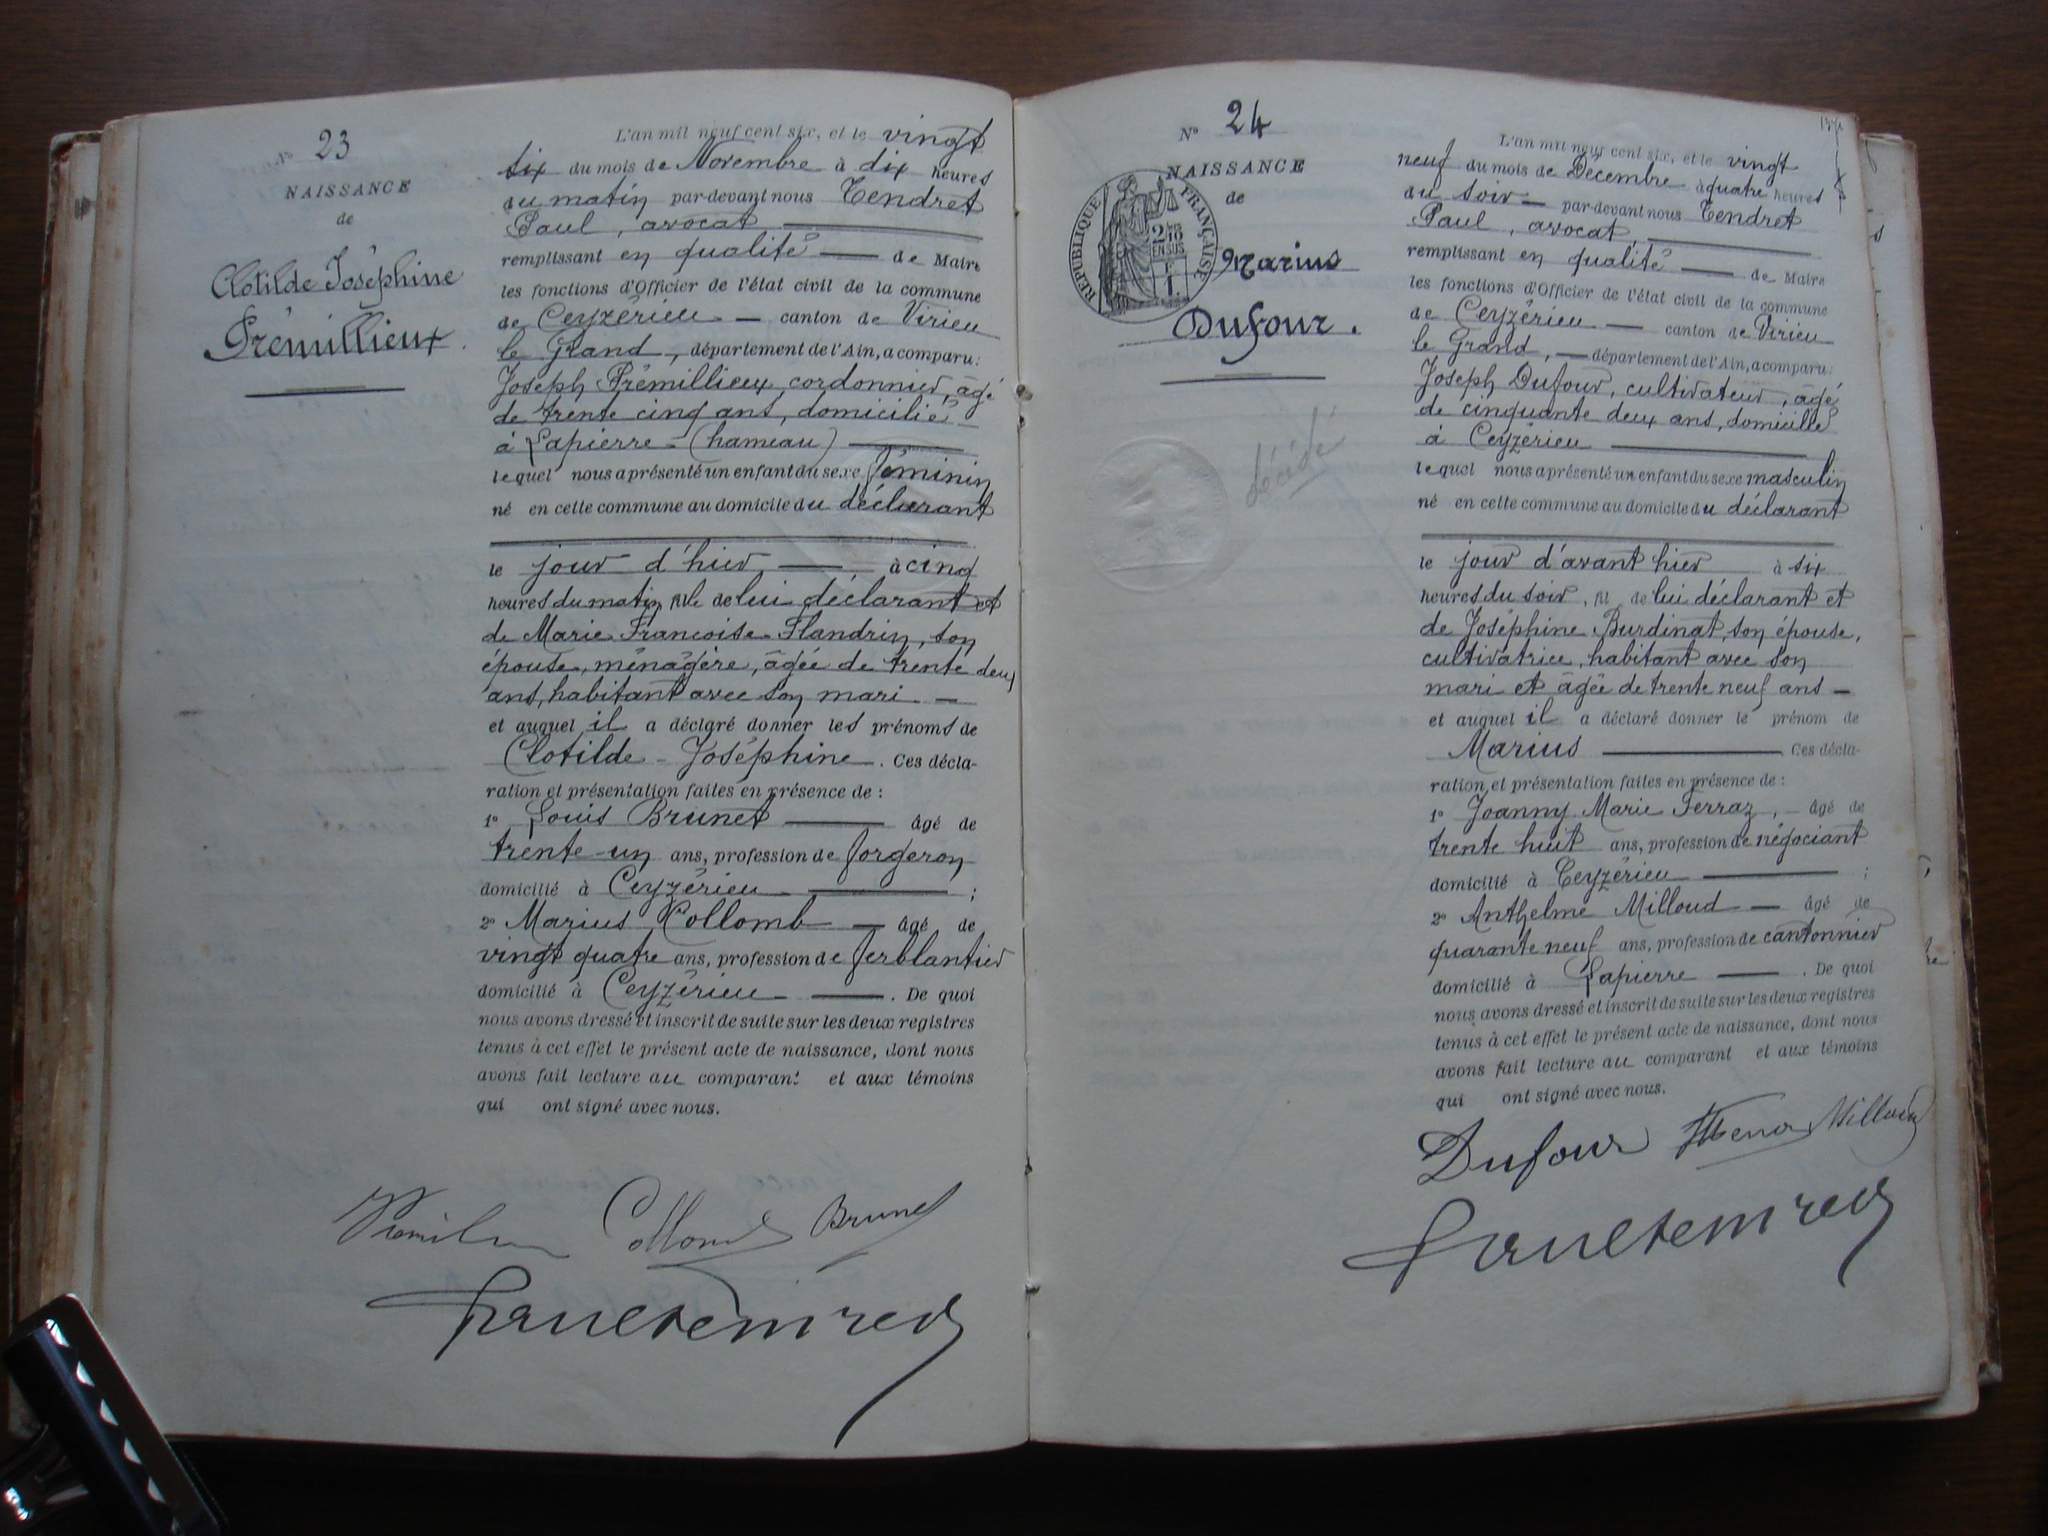 N° 23
NAISSANCE
de
Clotilde Joséphine
Prémillieux.
L'an mil neuf cent six, et le vingt
six du mois de Novembre à dix heures
du matin par-devant nous Tendret
Paul, avocat
remplissant en qualité de Maire
les fonctions d'Officier de l'état civil de la commune
de Ceyzérieu canton de Virieu
le Grand, département de l'Ain, a comparu:
Joseph Prémillieux, cordonnier, âgé
de trente cinq ans, domicilié
à Lapierre - (hameau)
lequel nous a présenté un enfant du sexe féminin
né en cette commune au domicile du déclarant
le jour d'hier à cinq
heures du matin, fille de lui déclarant et
de Marie Françoise Flandrin, son
épouse, ménagère, âgée de trente deux
ans, habitant avec son mari. —
et auquel il a déclaré donner les prénoms de
Clotilde - Joséphine. Ces décla-
ration et présentation faites en présence de :
1° Louis Brunet âgé de
trente-un ans, profession de forgeron
domicilié à Ceyzérieu ;
2° Marius Collomb âgé de
vingt quatre ans, profession de ferblantier
domicilié à Ceyzérieu . De quoi
nous avons dressé et inscrit de suite sur les deux registres
tenus à cet effet le présent acte de naissance, dont nous
avons fait lecture au comparant et aux témoins
qui ont signé avec nous.
Collomb Brunet
Paul Tendret
N° 24
NAISSANCE
de
RÉPUBLIQUE FRANÇAISE
2/10 EN SUS
Marius
Dufour.
décédé
L'an mil neuf cent six, et le vingt
neuf du mois de Décembre à quatre heures
du soir — par-devant nous Tendret
Paul, avocat
remplissant en qualité de Maire
les fonctions d'Officier de l'état civil de la commune
de Ceyzérieu canton de Virieu
le Grand, — département de l'Ain, a comparu:
Joseph Dufour, cultivateur, âgé
de cinquante deux ans, domicilié
à Ceyzérieu
lequel nous a présenté un enfant du sexe masculin
né en cette commune au domicile du déclarant
le jour d'avant hier à six
heures du soir, fil de lui déclarant et
de Joséphine Burdinat, son épouse,
cultivatrice, habitant avec son
mari et âgée de trente neuf ans —
et auquel il a déclaré donner le prénom de
Marius Ces décla-
ration et présentation faites en présence de :
1° Joanny Marie Ferraz, — âgé de
trente huit ans, profession de négociant
domicilié à Ceyzérieu ;
2° Anthelme Milloud — âgé de
quarante neuf ans, profession de cantonnier
domicilié à Lapierre . De quoi
nous avons dressé et inscrit de suite sur les deux registres
tenus à cet effet le présent acte de naissance, dont nous
avons fait lecture au comparant et aux témoins
qui ont signé avec nous.
Dufour Milloud
Paul Tendret